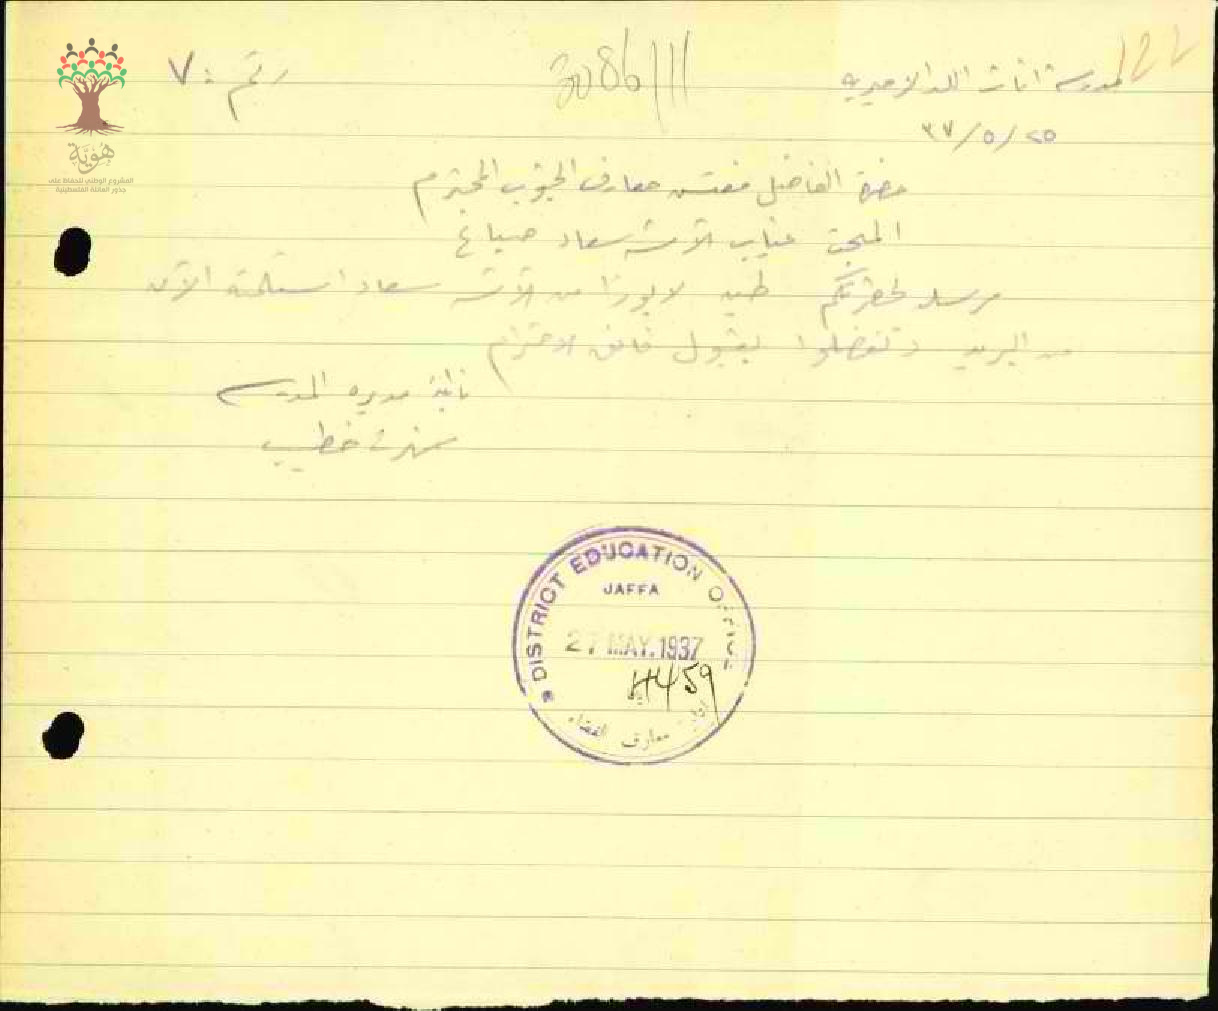 122
2086/11
مدرسة اناث اللد الاميرية
رقم : ٧
٢٥/٥/٣٧
حضرة الفاضل مفتش معارف الجنوب المحترم
المبحث غياب الآنسة سعاد صباغ
مرسل لحضرتكم طيه من الآنسة سعاد استلمته الآن
من البريد وتفضلوا بقبول فائق الاحترام
نائبة مديرة المدرسة
خطيب
DISTRICT EDUCATION OFFICE
JAFFA
27 MAY.1937
H459
معارف القضاء
هُوِيَّة
المشروع الوطني للحفاظ على
جذور العائلة الفلسطينية